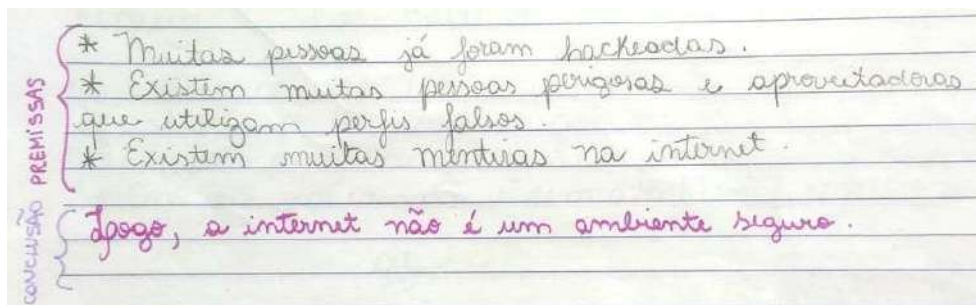 PREMISSAS
* Muitas pessoas já foram hackeadas.
* Existem muitas pessoas perigosas e aproveitadoras
que utilizam perfis falsos.
* Existem muitas mentiras na internet.
CONCLUSÃO
Logo, a internet não é um ambiente seguro.